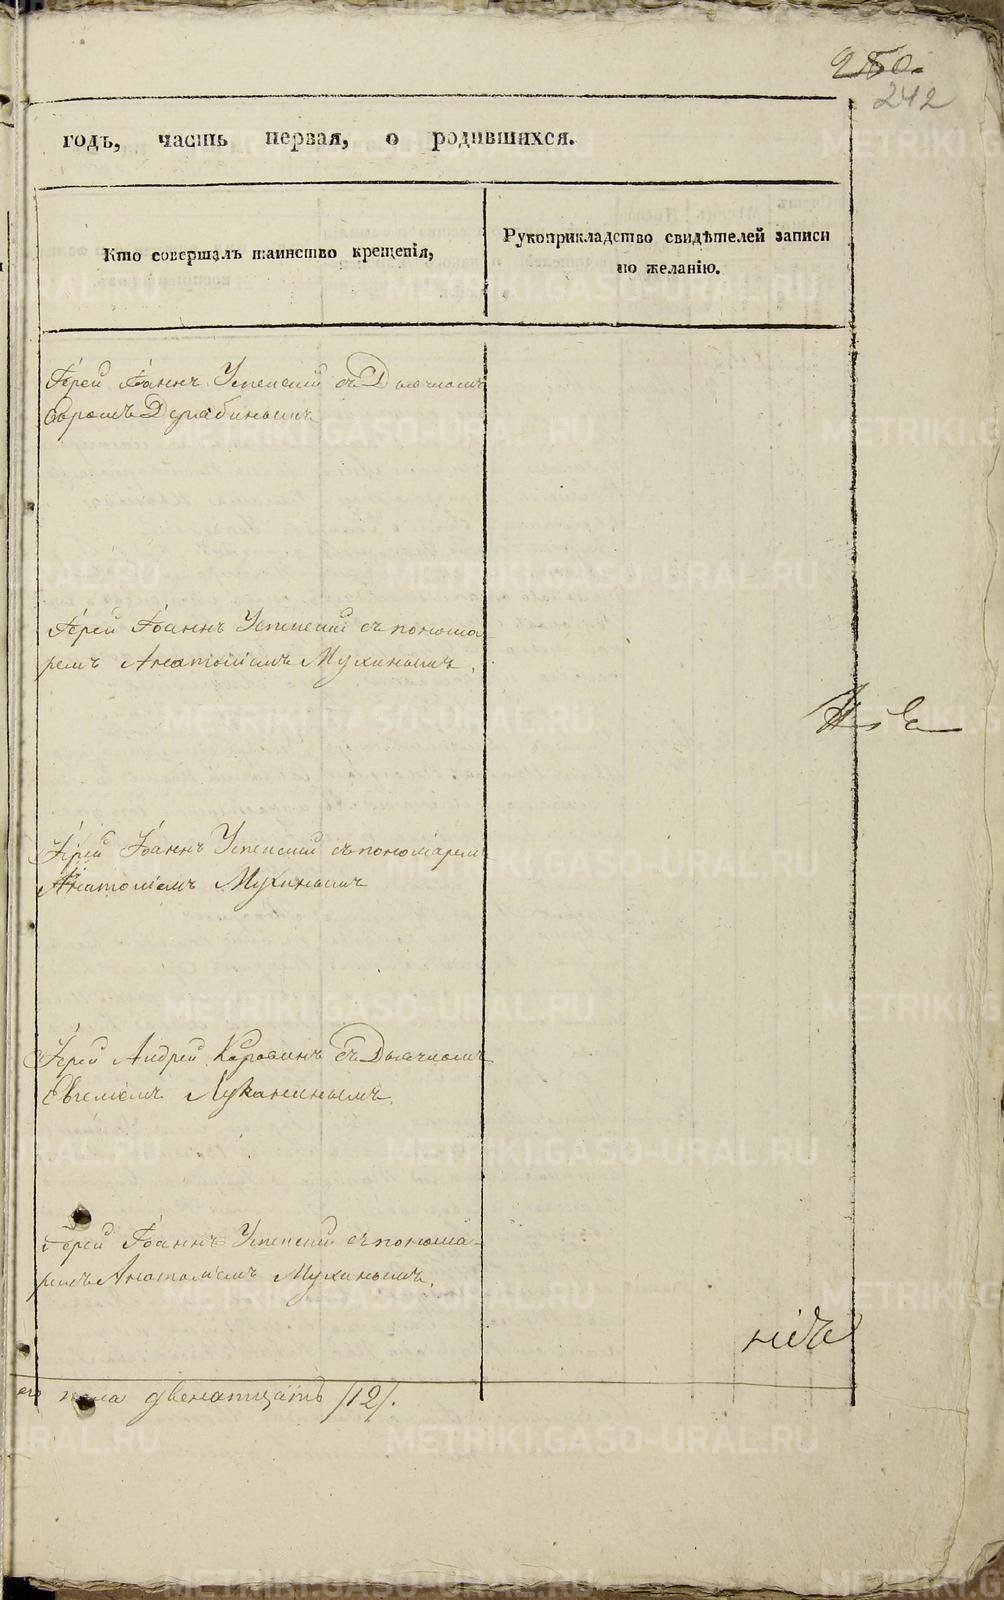 250.
242
годъ, часть первая, о родившихся.
Кто совершалъ таинство крещенія,
Рукоприкладство свидѣтелей записи
по желанію.
Іерей Іоаннъ Успенскій съ Дьячкомъ
Дерябинымъ
Іерей Іоаннъ Успенскій съ понома-
ремъ Анатоліемъ Мухинымъ.
Іерей Іоаннъ Успенскій съ пономаремъ
Анатоліемъ Мухинымъ
Іерей Андрей Коровинъ съ Дьячкомъ
Евгеніемъ Луканинымъ.
Іерей Іоаннъ Успенскій съ понома-
ремъ Анатоліемъ Мухинымъ.
пола двенатцать /12/.
METRIKI.GASO-URAL.RU